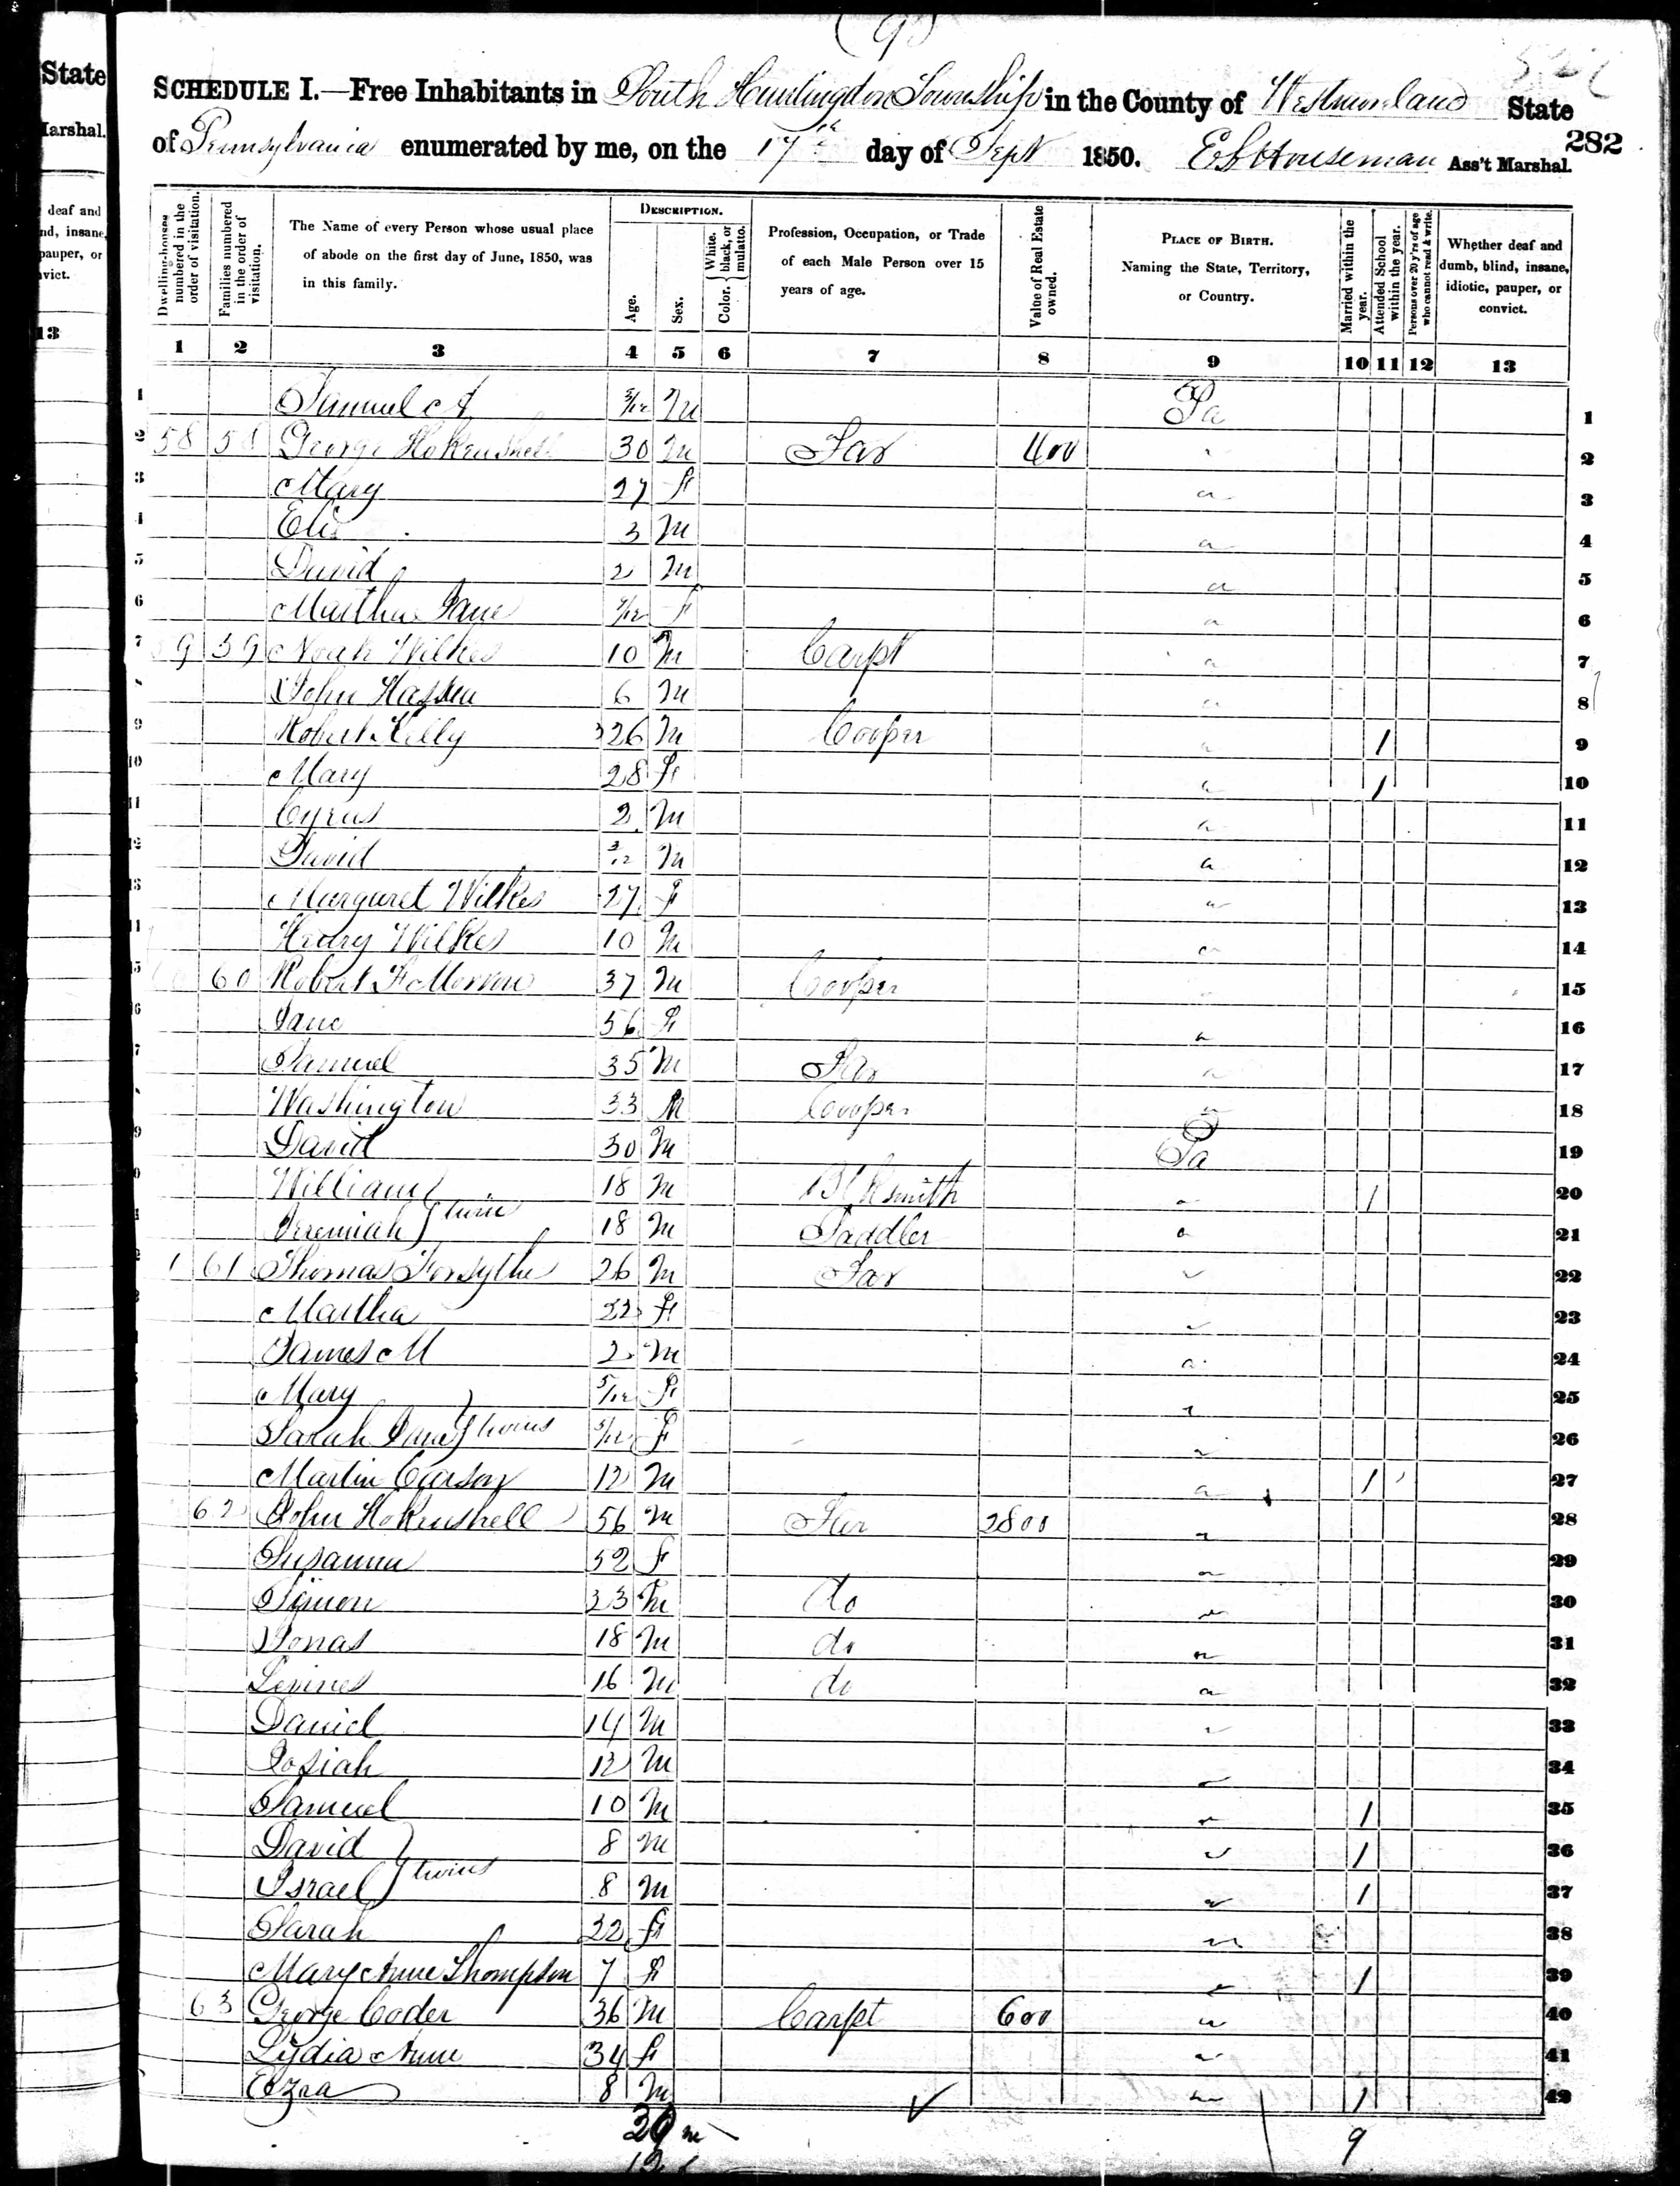 (9)
State
Marshal.
deaf and
nd, insane,
pauper, or
vict.
13
SCHEDULE I.—Free Inhabitants in South Huntingdon Township in the County of Westmoreland State
of Pennsylvania enumerated by me, on the 17th day of Sept 1850. Houseman Ass't Marshal.
282
Dwelling-houses numbered in the order of visitation.
Families numbered in the order of visitation.
The Name of every Person whose usual place of abode on the first day of June, 1850, was in this family.
DESCRIPTION.
Age.
Sex.
Color. { White, black, or mulatto.
Profession, Occupation, or Trade of each Male Person over 15 years of age.
Value of Real Estate owned.
PLACE OF BIRTH. Naming the State, Territory, or Country.
Married within the year.
Attended School within the year.
Persons over 20 y'rs of age who cannot read & write.
Whether deaf and dumb, blind, insane, idiotic, pauper, or convict.
1 2 3 4 5 6 7 8 9 10 11 12 13
1 Samuel A 3/12 M Pa 1
2 58 58 George Hokenshell 30 M Far 400 2
3 Mary 27 F a 3
4 Eli 3 M a 4
5 David 2 M a 5
6 Martha Jane /12 F a 6
7 9 59 Noah Wilkes 10 M Carpt a 7
John 6 M a 8
9 Robert Kelly 26 M Cooper a / 9
10 Mary 28 F a / 10
11 Cyrus 2 M a 11
12 David 3/12 M a 12
13 Margaret Wilkes 27 F a 13
Henry Wilkes 10 M a 14
60 Robert F Morrow 37 M Cooper 15
Jane 56 F a 16
Samuel 35 M Far a 17
Washington 33 M Cooper a 18
David 30 M Pa 19
William 18 M Blksmith a / 20
Jeremiah } twins 18 M Saddler a 21
1 61 Thomas Forsythe 26 M Far 22
Martha 22 F 23
James M 2 M a 24
Mary 5/12 F a 25
Sarah Jane } twins 5/12 F a 26
Martin Carson 12 M a / 27
62 John Hokenshell 56 M Far 2800 a 28
Susanna 52 F a 29
Simon 23 M do a 30
Jonas 18 M do a 31
16 M do a 32
Daniel 14 M 33
Josiah 12 M 34
Samuel 10 M a / 35
David 8 M / 36
Israel } twins 8 M a / 37
Sarah 22 F a 38
Mary Anne Thompson 7 F / 39
63 George Coder 36 M Carpt 600 a 40
Lydia Anne 34 F a 41
Ezra 8 M a / 42
29 m
9